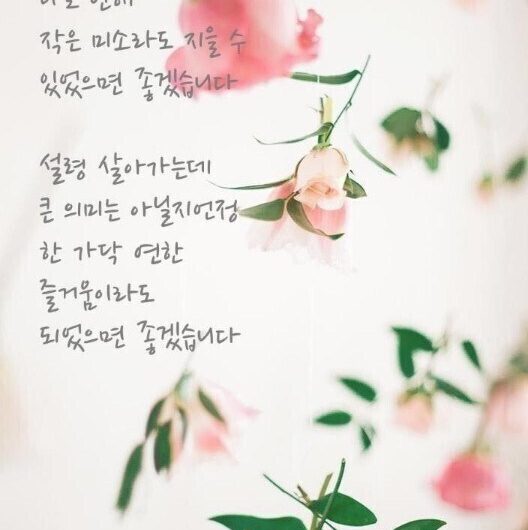 작은 미소라도 지을 수
있었으면 좋겠습니다
설령 살아가는데
큰 의미는 아닐지언정
한 가닥 연한
즐거움이라도
되었으면 좋겠습니다